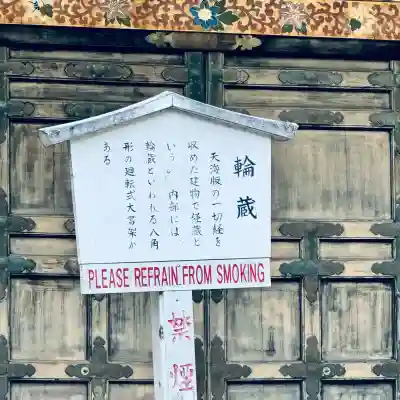 輪蔵
天海版の一切経を
収めた建物で経蔵と
いう。内部には
輪蔵といわれる八角
形の廻転式大書架が
ある
PLEASE REFRAIN FROM SMOKING
禁煙